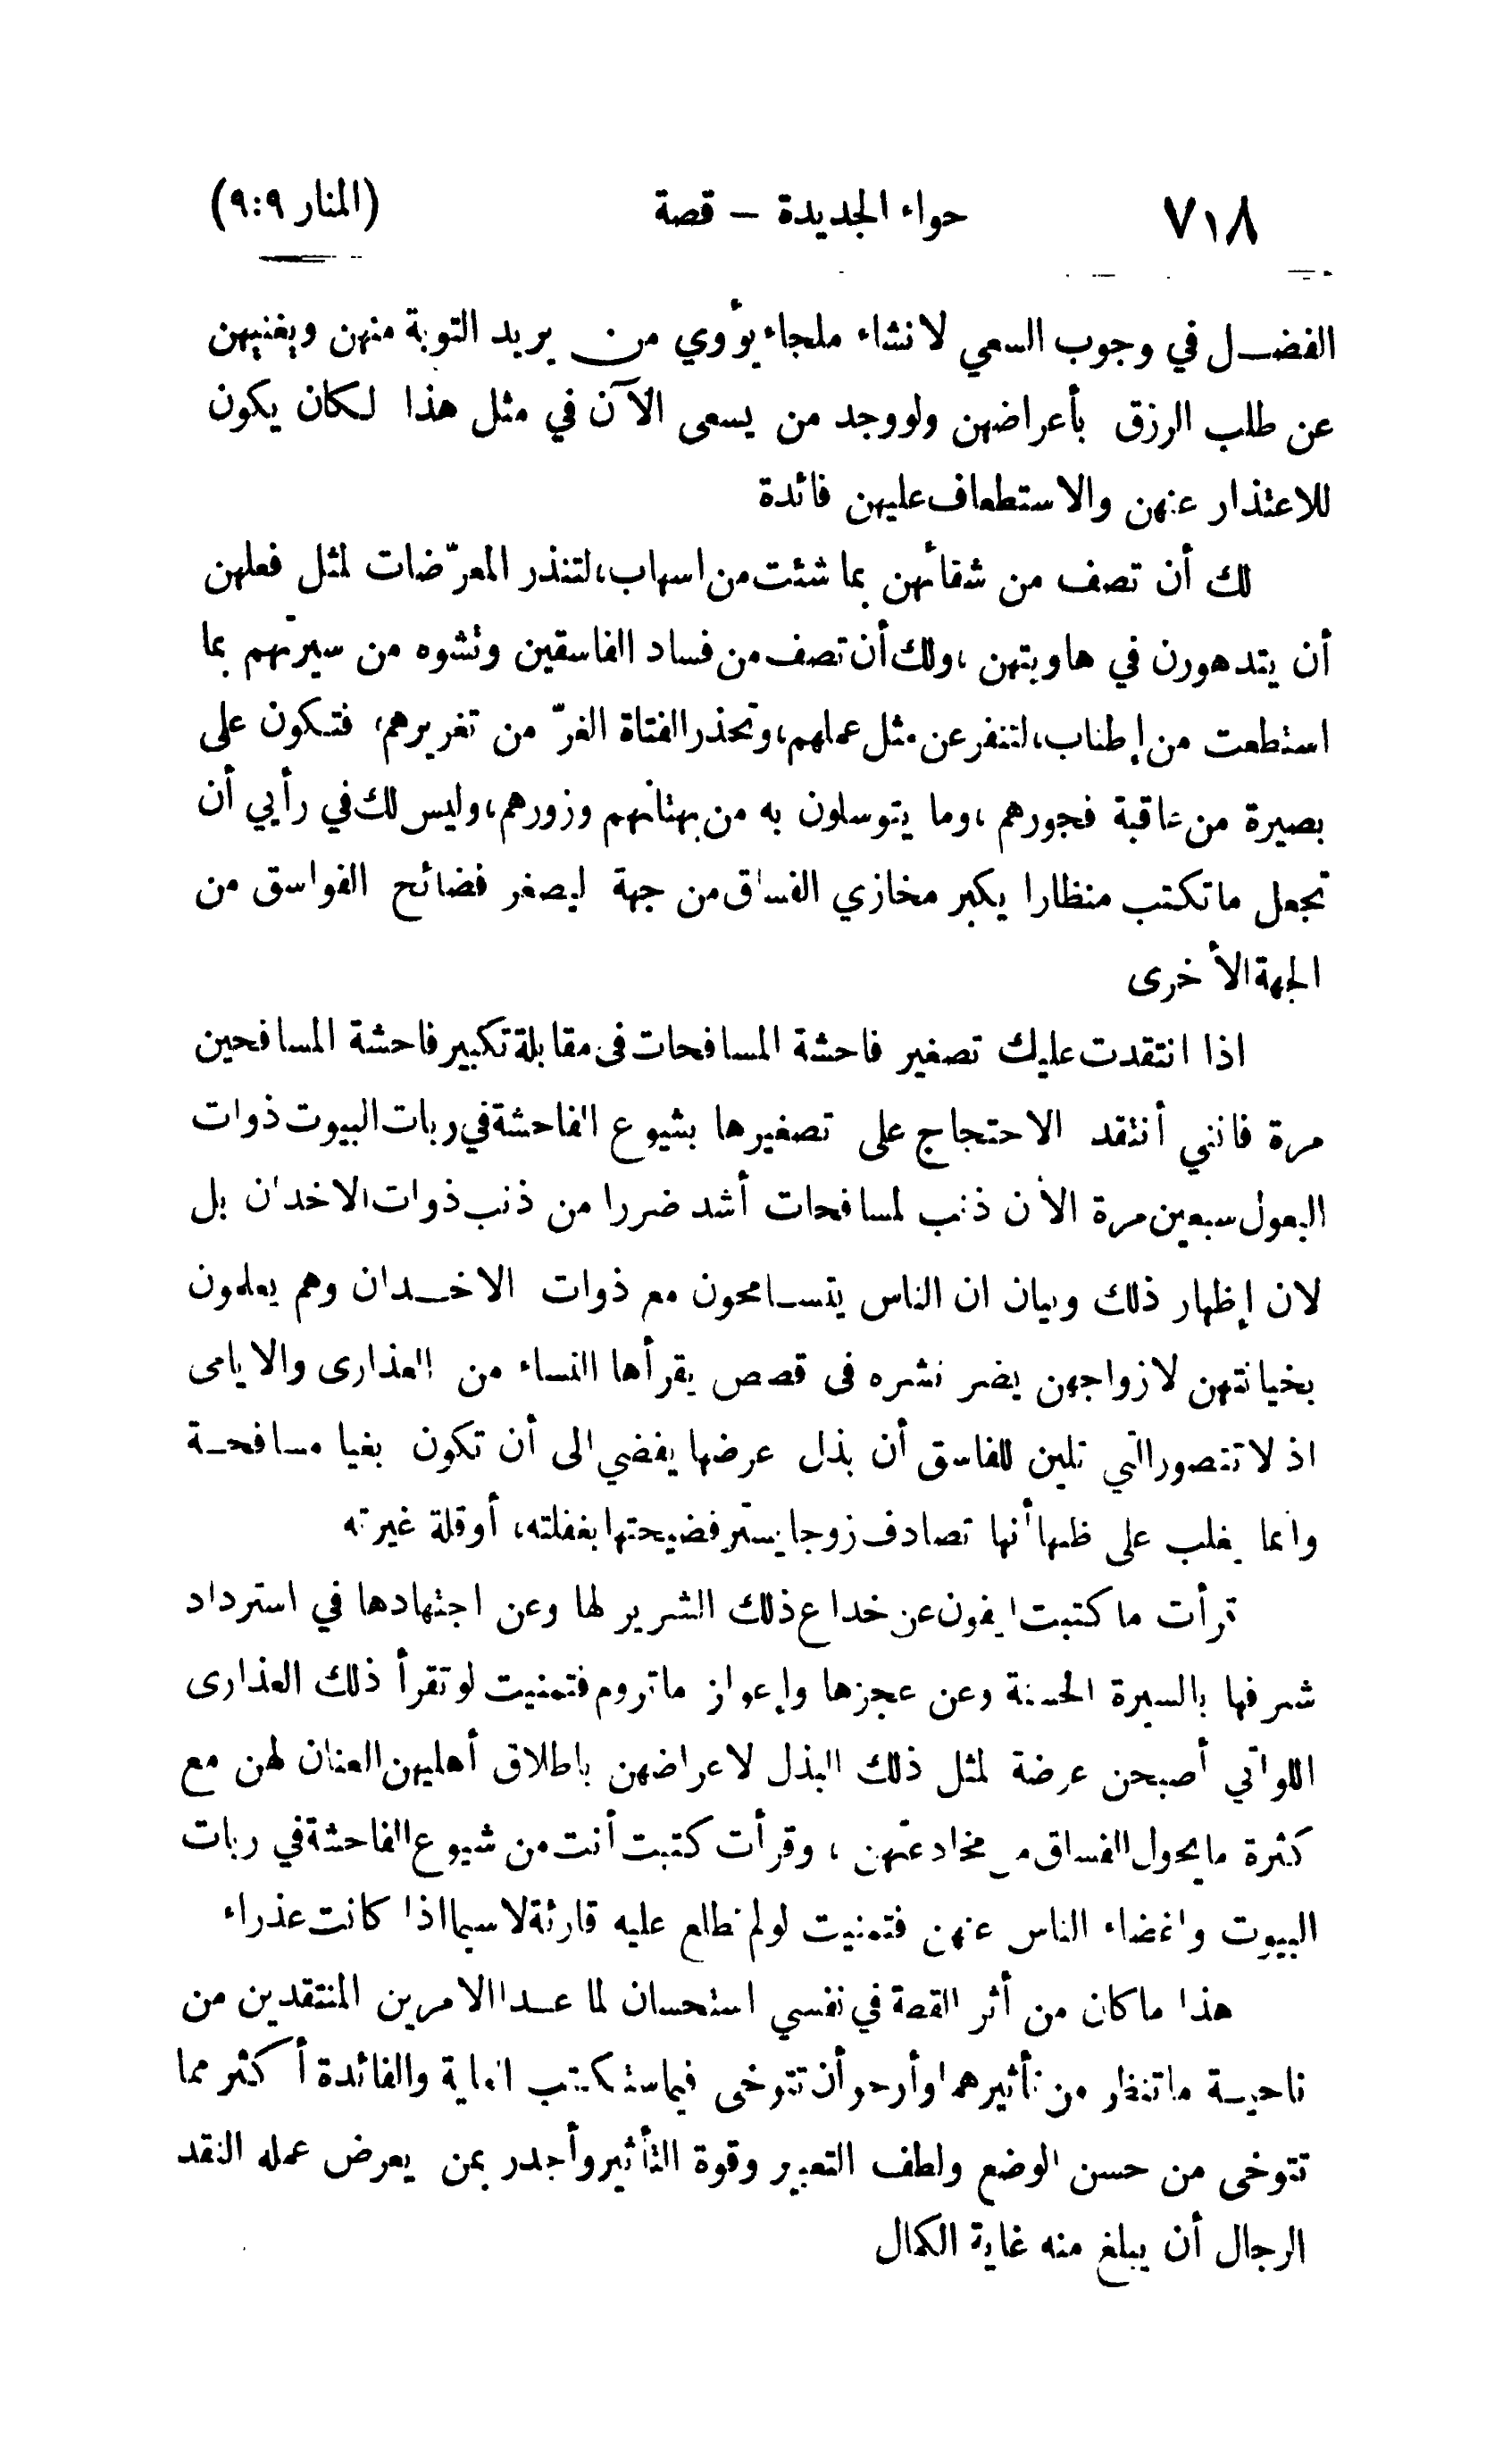 ٧١٨ حواء الجديدة – قصة (المنار ٩:٩)
الفضل في وجوب السعي لانشاء ملجاء يؤوي من يريد التوبة منهن ويغنيهن
عن طلب الرزق بأعراضهن ولو وجد من يسعى الآن في مثل هذا لكان يكون
للاعتذار عنهن والاستطعاف عليهن فائدة
لك أن تصف من شقائهن بما شئت من اسهاب، لتنذر المعرّضات لمثل فعلهن
أن يتدهورن في هاويتهن ، ولك أن تصف من فساد الفاسقين وتشوه من سيرتهم بما
استطعت من إطناب، لتنفر عن مثل عملهم، وتحذر الفتاة الغرّ من تغريرهم، فتكون على
بصيرة من عاقبة فجورهم ، وما يتوسلون به من بهتانهم وزورهم، وليس لك في رأيي أن
تجعل ما تكتب منظارا يكبر مخازي الفساق من جهة ليصغر فضائح الفواسق من
الجهة الأخرى
اذا انتقدت عليك تصغير فاحشة المسافحات في مقابلة تكبير فاحشة المسافحين
مرة فانني أنتقد الاحتجاج على تصغيرها بشيوع الفاحشة في ربات البيوت ذوات
البعول سبعين مرة الأن ذنب لمسافحات أشد ضررا من ذنب ذوات الاخدان بل
لان إظهار ذلك وبيان ان الناس يتسامحون مع ذوات الاخدان وهم يعلمون
بخيانتهن لازواجهن يضر نشره في قصص يقرأها النساء من العذارى والايامى
اذ لا تتصور التي تلين للفاسق أن بذل عرضها يفضي الى أن تكون بغيا مسافحة
وانما يغلب على ظنها أنها تصادف زوجا يستر فضيحتها بغفلته، أو قلة غيرته
قرأت ما كتبت ايفون عن خداع ذلك الشرير لها وعن اجتهادها في استرداد
شرفها بالسيرة الحسنة وعن عجزها وإعواز ما تروم فتمنيت لو تقرأ ذلك العذارى
اللواتي أصبحن عرضة لمثل ذلك البذل لاعراضهن باطلاق أهليهن العنان لهن مع
كثرة ما يحول الفساق من مخادعتهن ، وقرأت كتبت أنت من شيوع الفاحشة في ربات
البيوت واغضاء الناس عنهن فتمنيت لو لم تطلع عليه قارئة لا سيما اذا كانت عذراء
هذا ما كان من أثر القصة في نفسي استحسان لما عدا الامرين المنتقدين من
ناحية ما تنظر من تأثيرهما وأرجو أن تتوخى فيما ستكتب الغاية والفائدة أكثر مما
تتوخى من حسن الوضع ولطف التعبير وقوة التأثير وأجدر بمن يعرض عمله لنقد
الرجال أن يبلغ منه غاية الكمال